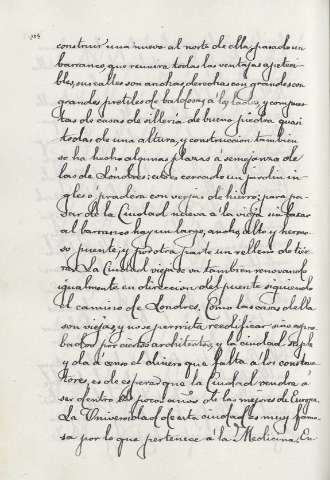 construir una nueva al norte de ella, pasado un
barranco, que reuniera todas las ventajas apeteci-
bles, sus calles son anchas derechas con grandes con
grandes pretiles de baldosa á los lados, y compues-
tas de casas de sillería de buena piedra quasi
todas de una altura, y construccion, tambien
se ha hecho algunas plazas á semejanza de
las de Lóndres: este es cercado un jardin in-
gles ó pradera con verjas de hierro: para pa-
sar de la Ciudad nueva á la vieja sin bajar
al barranco hay un largo, ancho, alto y hermo-
so puente; y por otra parte un relleno de tier-
ra. La Ciudad vieja se va tambien renovando
igualmente en direccion del puente siguiendo
el camino de Londres. Como las casas della
son viejas y no se permita reedificar sino apro-
bado por ciertos architectos, y la ciudad suple
y da á censo el dinero que falta á los constru-
tores, es de esperar que la Ciudad vendra á
ser dentro de pocos años de las mejores de Europa.
La Universidad de esta ciudad es muy famo-
sa por lo que pertenece á la Medicina. En